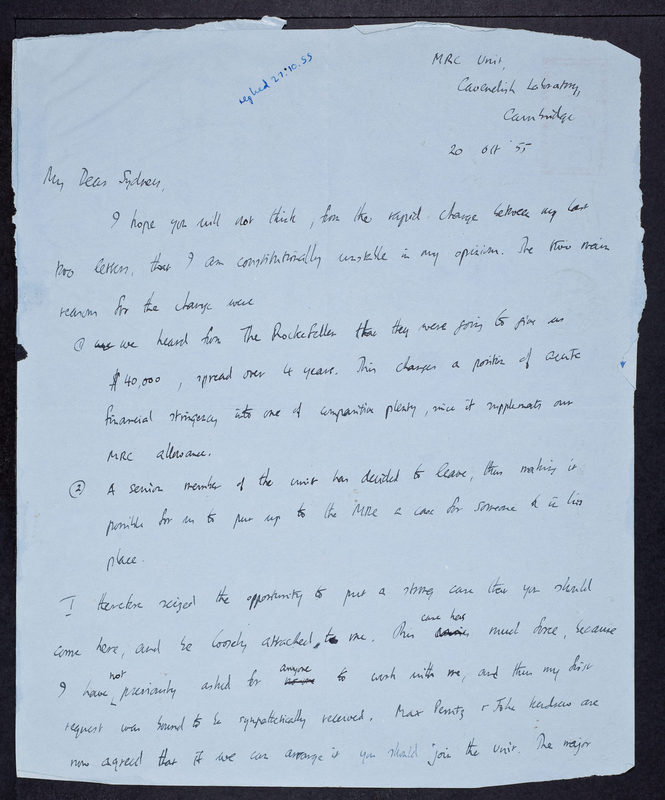 replied 27.10.55
MRC Unit,
Cavendish Laboratory,
Cambridge
20 Oct '55
My Dear Sydney,
I hope you will not think, from the rapid change between my last
two letters, that I am constitutionally unstable in my opinion. The two main
reasons for the change were
① we heard from The Rockefeller that they were going to give us
$40,000, spread over 4 years. This changes a position of acute
financial stringency into one of comparative plenty, since it supplements our
MRC allowance.
② A senior member of the unit has decided to leave, thus making it
possible for us to put up to the MRC a case for someone in his
place.
I therefore seized the opportunity to put a strong case that you should
come here, and be loosely attached to me. This case has much force, because
I have not previously asked for anyone to work with me, and thus my first
request was bound to be sympathetically received. Max Perutz & John Kendrew are
now agreed that if we can arrange it you should join the Unit. The major